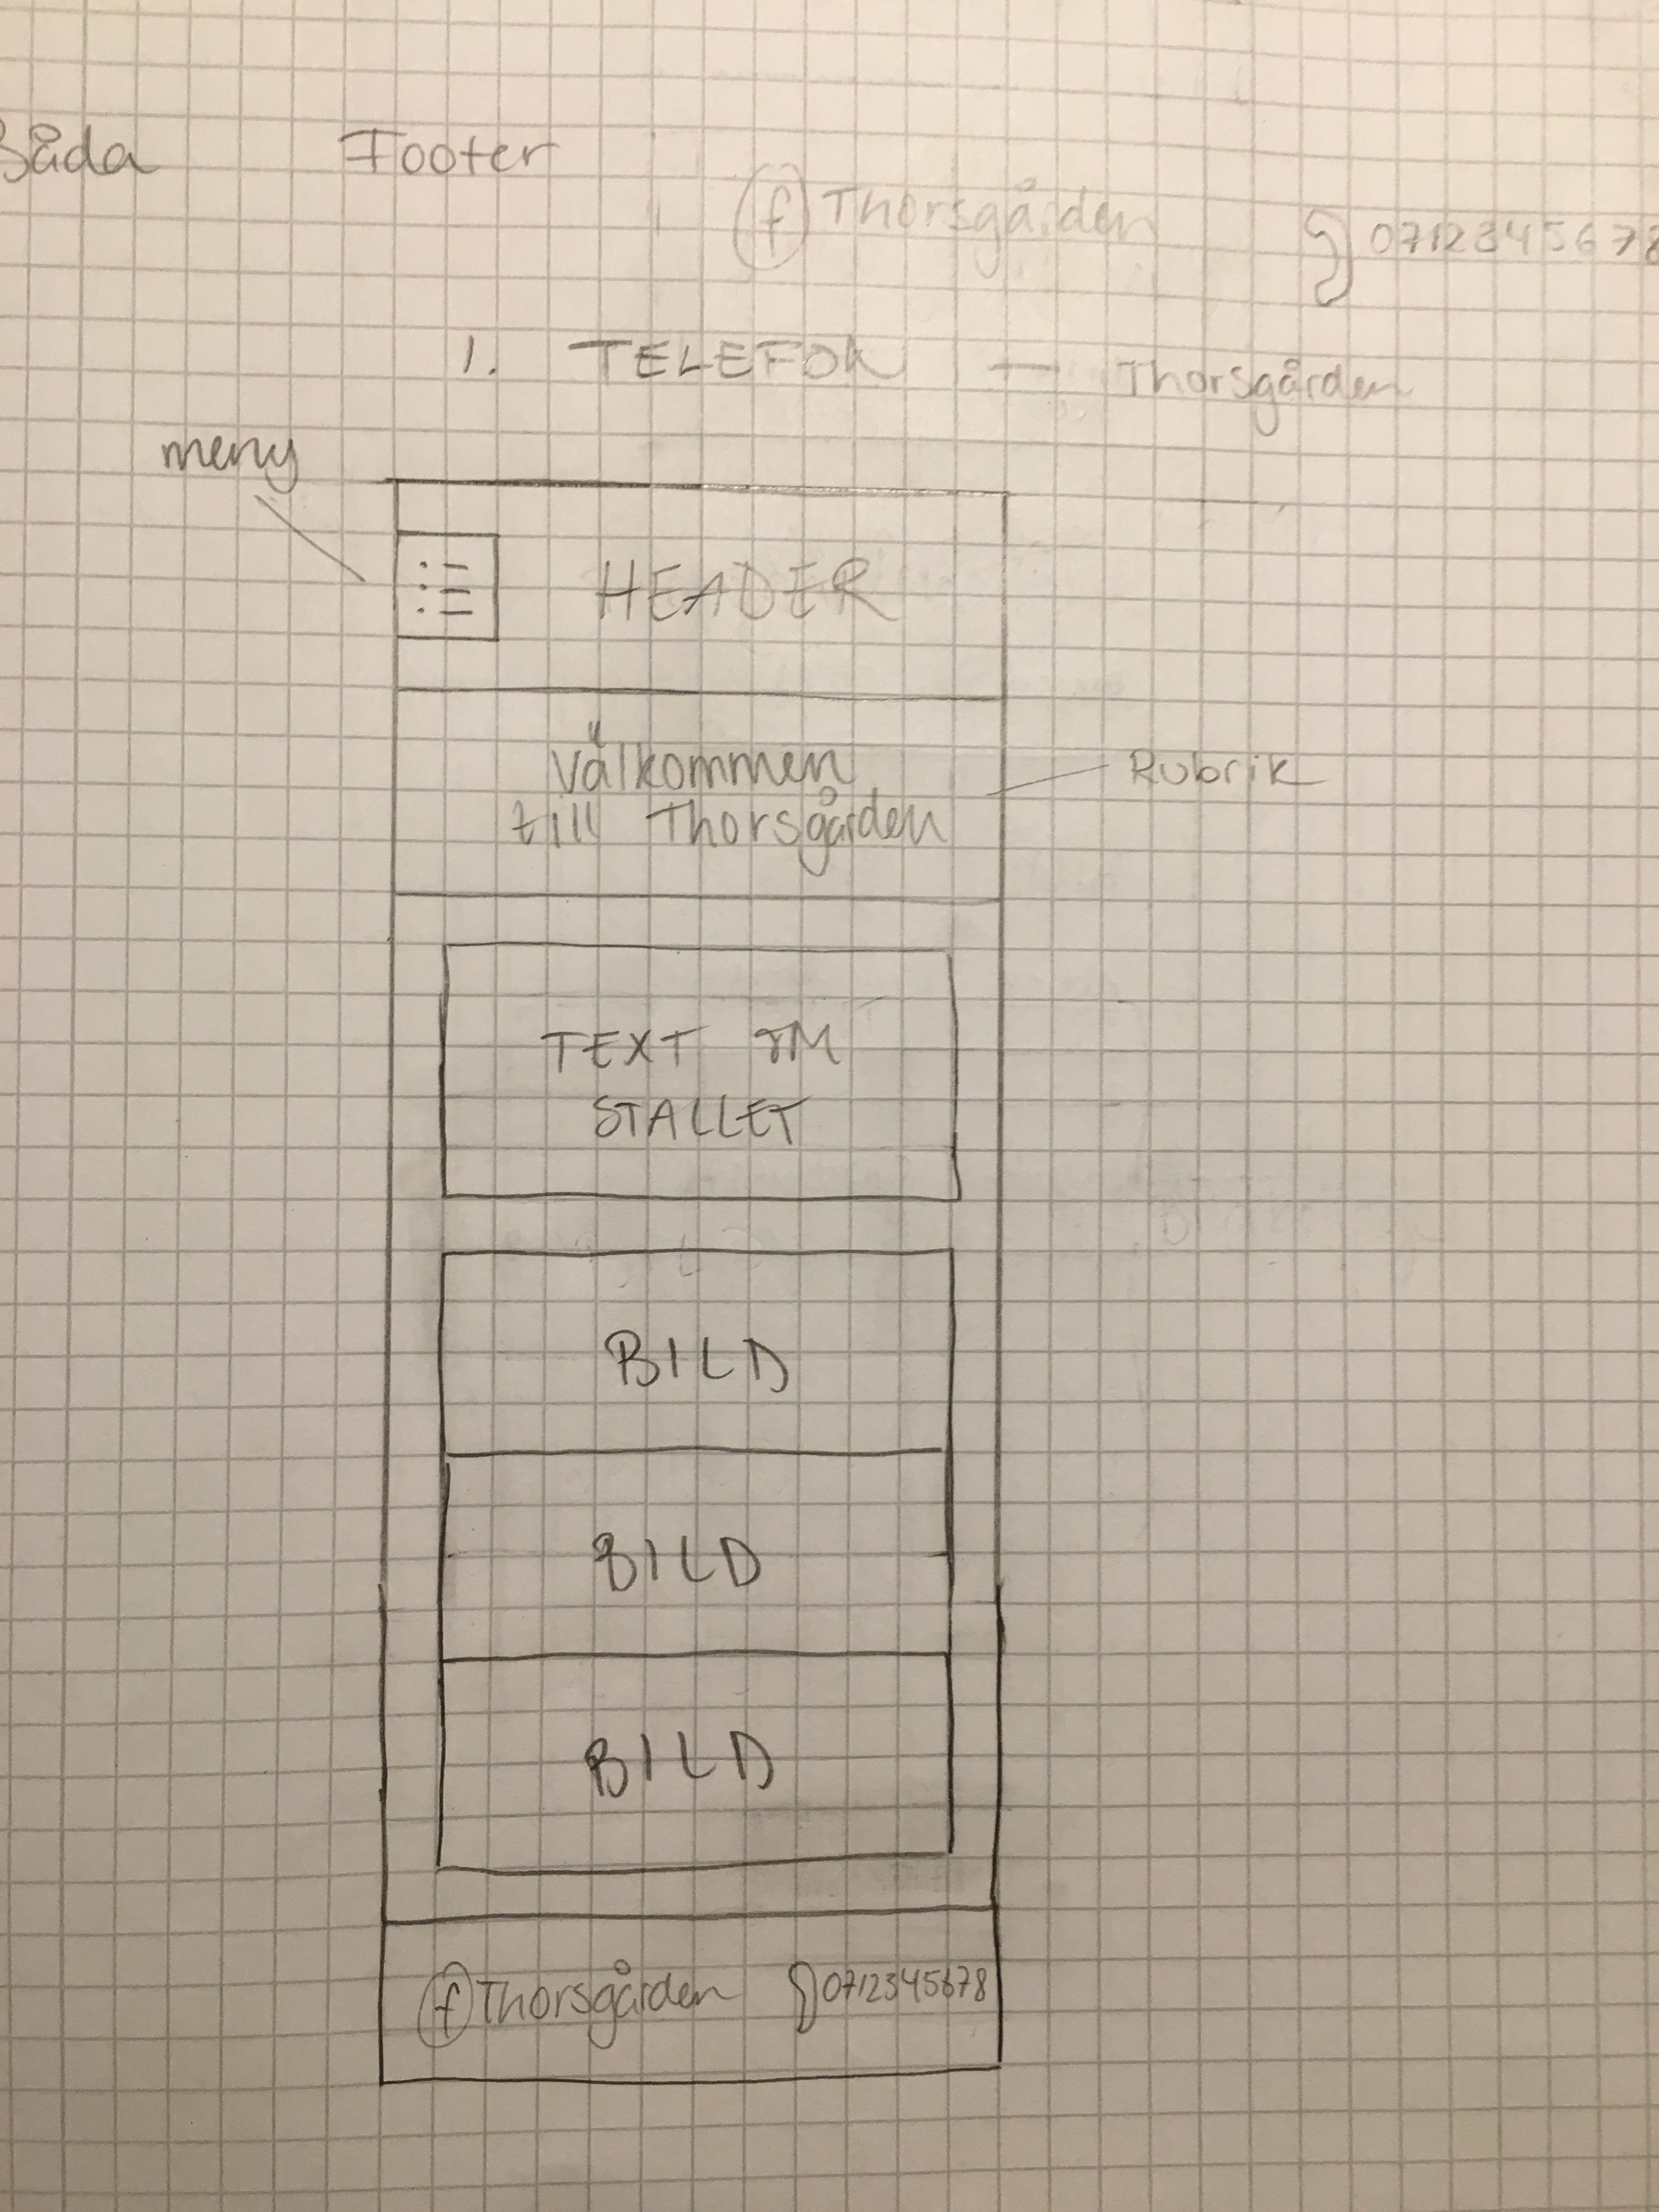 Båda Footer
f Thorsgården 0712345678
1. TELEFON — Thorsgården
meny
HEADER
Välkommen
till Thorsgården
Rubrik
TEXT OM
STALLET
BILD
BILD
BILD
f Thorsgården 0712345678